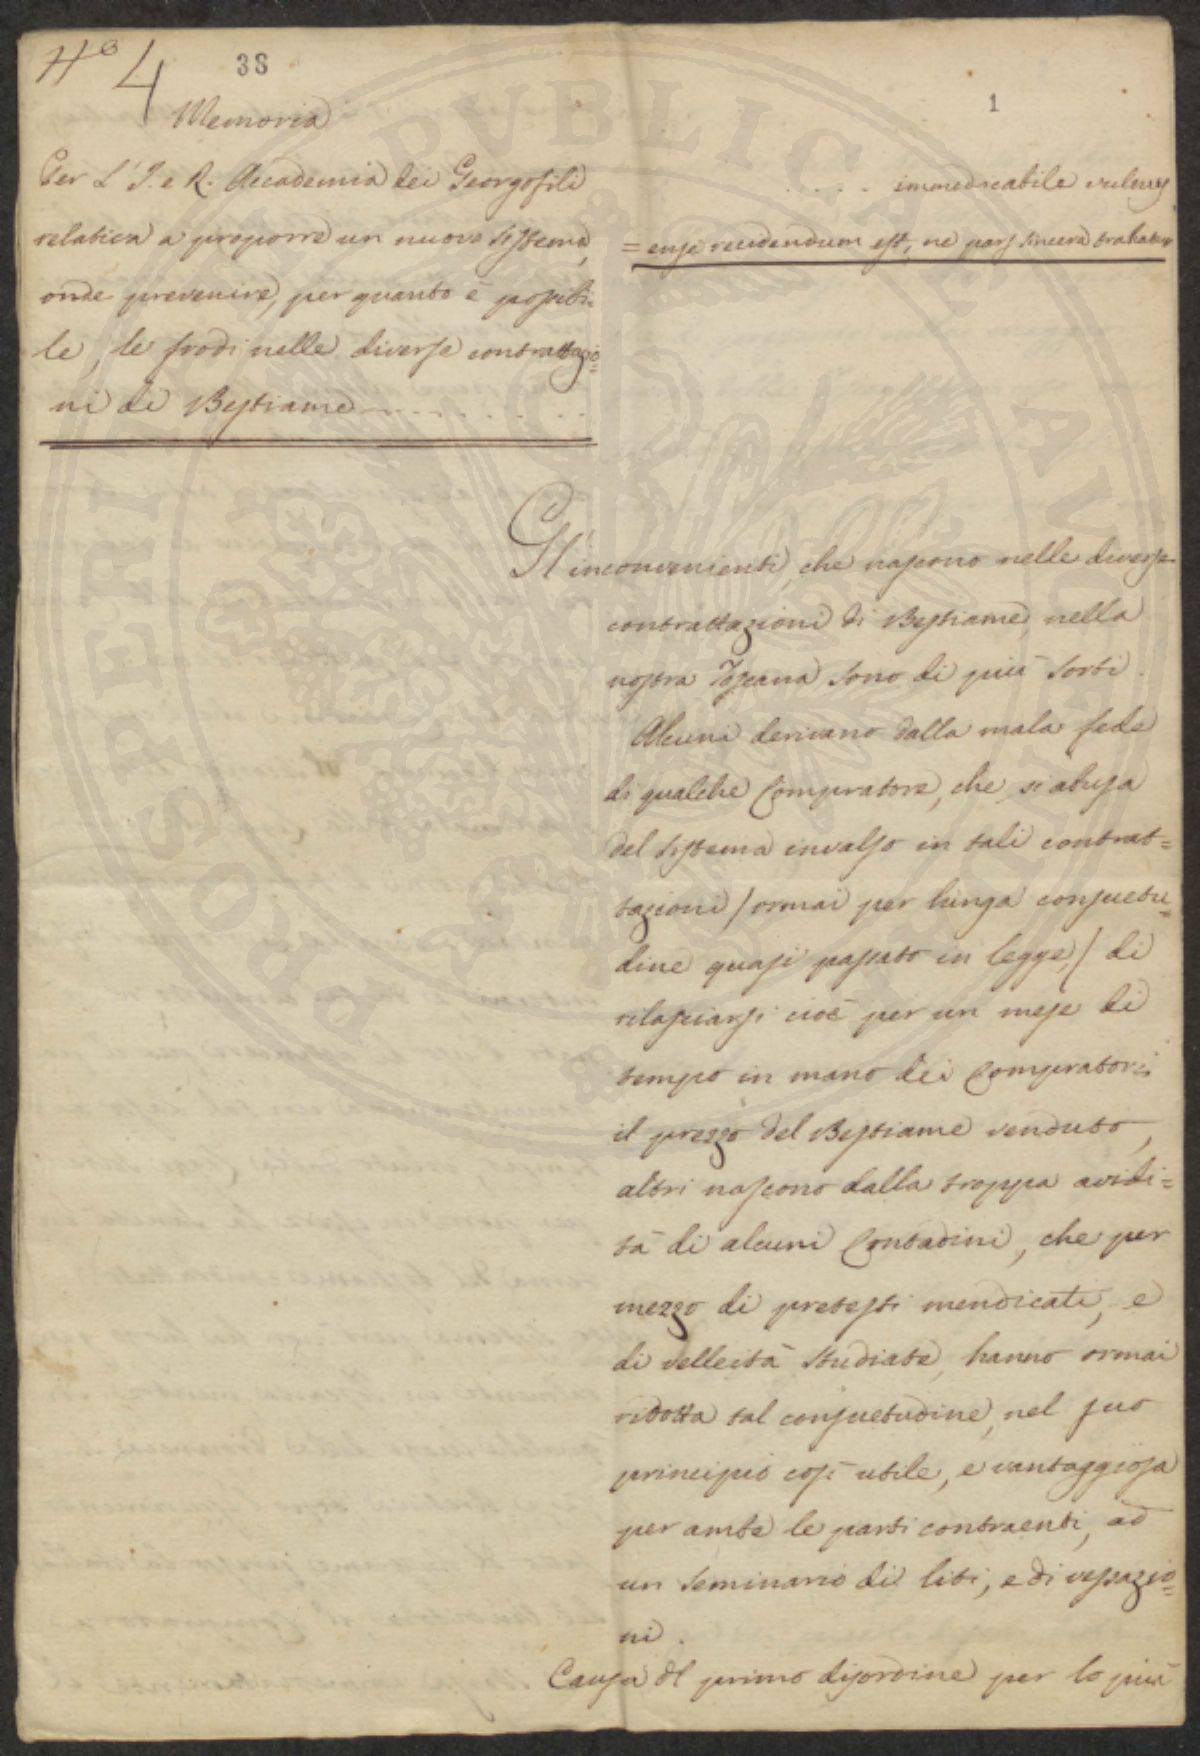 N.o 4
38
1
Memoria
Per L'I. e R. Accademia dei Georgofili
relativa a proporre un nuovo sistema,
onde prevenire, per quanto è possibi-
le, le frodi nelle diverse contrattazio=
ni di Bestiame
. . . . immedicabile vulnus
= ense recidendum est, ne pars sincera trahatur
Gl'inconvenienti che nascono nelle diverse
contrattazioni di Bestiame nella
nostra Toscana sono di più sorti.
Alcuni derivano dalla mala fede
di qualche Compratore, che si abusa
del sistema invalso in tali contrat=
tazioni / ormai per lunga consuetu=
dine quasi passato in legge, / di
rilasciarsi cioè per un mese di
tempo in mano dei Compratori
il prezzo del Bestiame venduto,
altri nascono dalla troppa avidi=
tà di alcuni Contadini, che per
mezzo di pretesti mendicati, e
di velleità studiate, hanno ormai
ridotta tal consuetudine, nel suo
principio così utile, e vantaggiosa
per ambe le parti contraenti, ad
un seminario di liti, e di vessazio=
ni.
Causa del primo disordine per lo più
PROSPERITATI PVBLICAE AVGENDAE